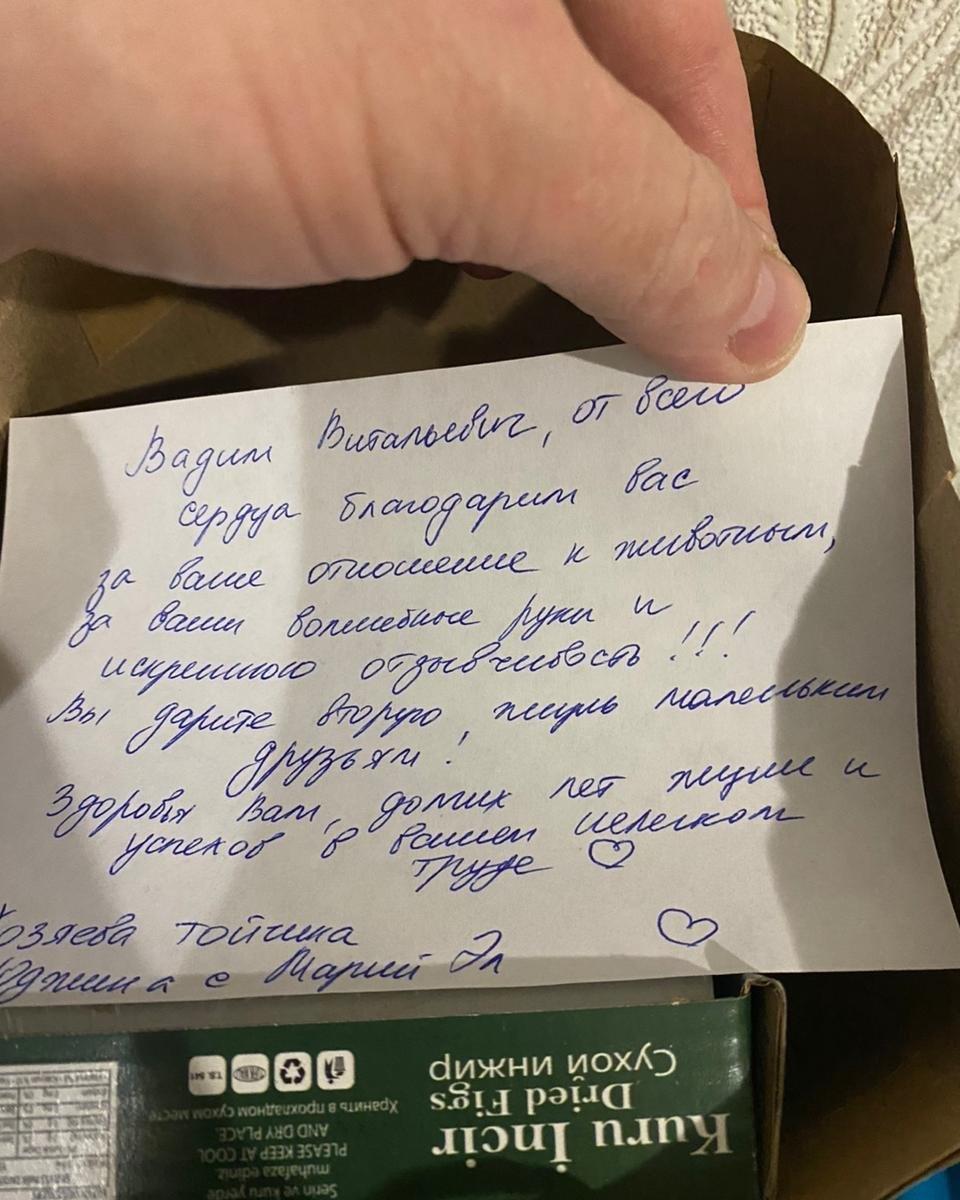 Вадим Витальевич, от всего
сердца благодарим вас
за ваше отношение к животным,
за ваши волшебные руки и
искреннюю отзывчивость !!!
Вы дарите вторую жизнь маленьким
друзьям !
Здоровья Вам, долгих лет жизни и
успехов в вашем нелегком
труде
Хозяева тойчика
Юджина с Марий Эл
Kuru İncir
Dried Figs
Сухой инжир
Serin ve kuru yerde
muhafaza ediniz
PLEASE KEEP AT COOL
AND DRY PLACE.
Хранить в прохладном сухом месте